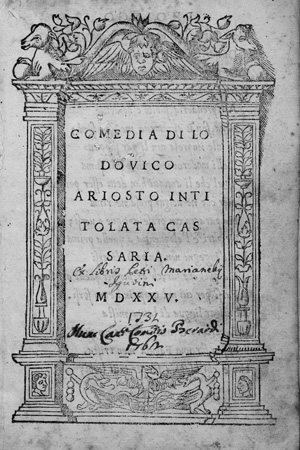 COMEDIA DI LO
DOVICO
ARIOSTO INTI
TOLATA CAS
SARIA.
Ex Libris Petri
MDXXV.
1731